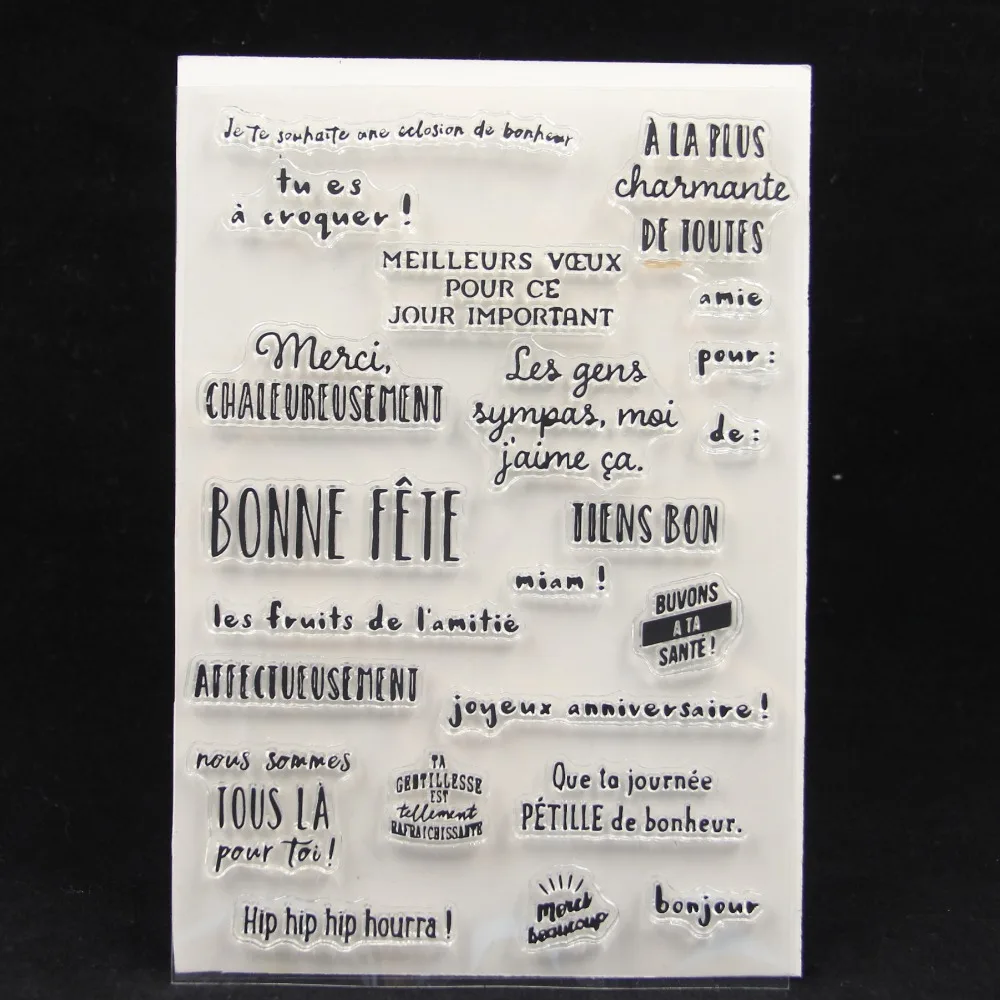 Je te souhaite une éclosion de bonheur
tu es
à croquer !
À LA PLUS
charmante
DE TOUTES
MEILLEURS VŒUX
POUR CE
JOUR IMPORTANT
amie
pour :
de :
Merci,
CHALEUREUSEMENT
Les gens
sympas, moi
j'aime ça.
BONNE FÊTE
TIENS BON
miam !
les fruits de l'amitié
BUVONS
A TA
SANTÉ !
AFFECTUEUSEMENT
joyeux anniversaire !
nous sommes
TOUS LÀ
pour toi !
TA
GENTILLESSE
EST
tellement
RAFRAICHISSANTE
Que ta journée
PÉTILLE de bonheur.
Hip hip hip hourra !
Merci
beaucoup
bonjour